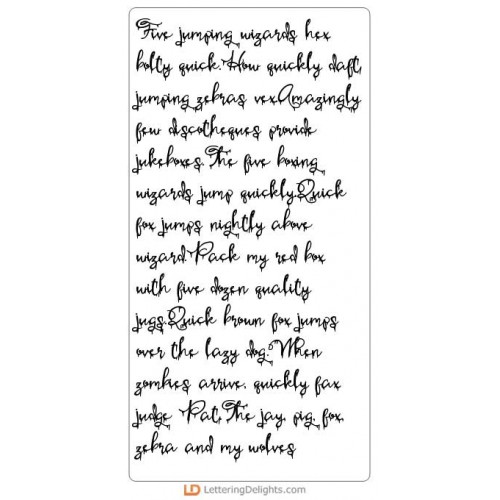 Five jumping wizards hex
bolty quick.How quickly daft,
jumping zebras vex.Amazingly
few discotheques provide
jukeboxes.The five boxing
wizards jump quickly.Quick
fox jumps nightly above
wizard.Pack my red box
with five dozen quality
jugs.Quick brown fox jumps
over the lazy dog."When
zombies arrive, quickly fax
judge Pat.The jay, pig, fox,
zebra and my wolves
LD LetteringDelights.com